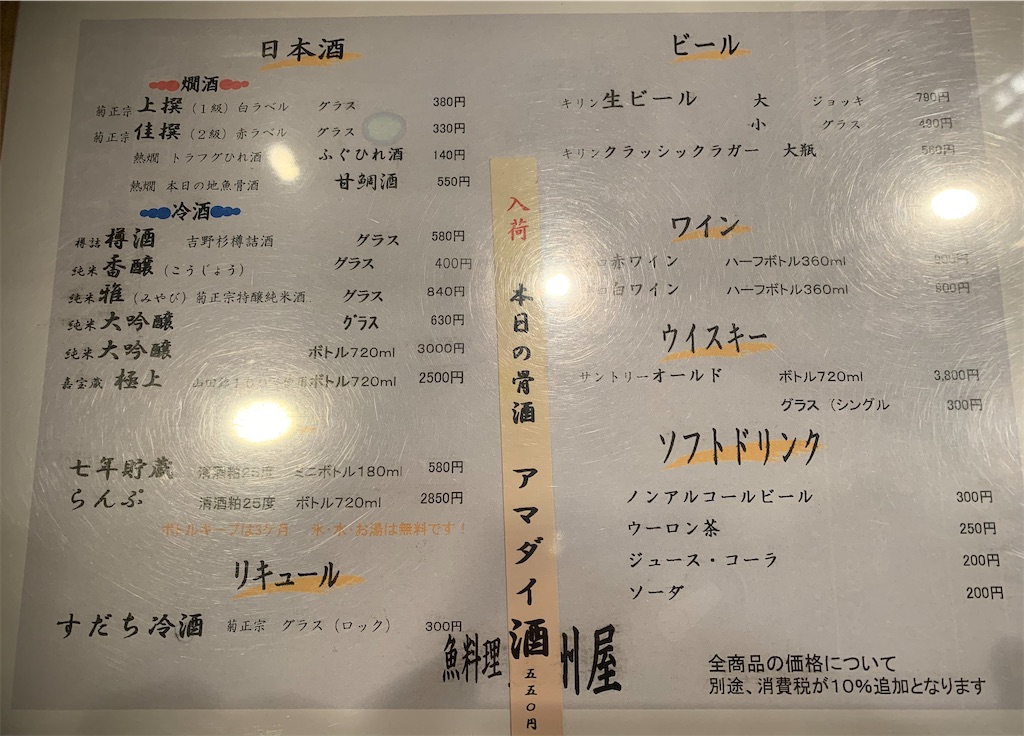 日本酒
燗酒
菊正宗 上撰 (1級) 白ラベル グラス 380円
菊正宗 佳撰 (2級) 赤ラベル グラス 330円
熱燗 トラフグひれ酒 ふぐひれ酒 140円
熱燗 本日の地魚骨酒 甘鯛酒 550円
冷酒
樽詰 樽酒 吉野杉樽詰酒 グラス 580円
純米 香醸 (こうじょう) グラス 400円
純米 雅 (みやび) 菊正宗特醸純米酒 グラス 840円
純米 大吟醸 グラス 630円
純米 大吟醸 ボトル720ml 3000円
嘉宝蔵 極上 ボトル720ml 2500円
七年貯蔵 清酒粕25度 ミニボトル180ml 580円
らんぷ 清酒粕25度 ボトル720ml 2850円
ボトルキープは3ヶ月 氷・水・お湯は無料です!
リキュール
すだち冷酒 菊正宗 グラス (ロック) 300円
入荷 本日の骨酒 アマダイ酒 五五〇円
ビール
キリン 生ビール 大 ジョッキ 790円
小 グラス 490円
キリン クラッシックラガー 大瓶 560円
ワイン
赤ワイン ハーフボトル360ml
白ワイン ハーフボトル360ml 800円
ウイスキー
サントリーオールド ボトル720ml 3,800円
グラス (シングル 300円
ソフトドリンク
ノンアルコールビール 300円
ウーロン茶 250円
ジュース・コーラ 200円
ソーダ 200円
魚料理 州屋
全商品の価格について
別途、消費税が10%追加となります